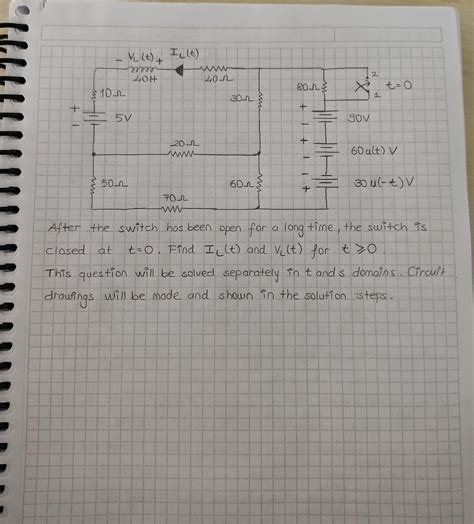 - VL(t) + IL(t)
40H 40Ω
2
t=0
1
80Ω
10Ω
30Ω
+
-
5V
+
-
90V
20Ω
+
-
60u(t) V
50Ω
60Ω
-
+
30u(-t) V
70Ω
After the switch has been open for a long time, the switch is
closed at t=0. Find IL(t) and VL(t) for t ≥ 0.
This question will be solved separately in t and s domains. Circuit
drawings will be made and shown in the solution steps.